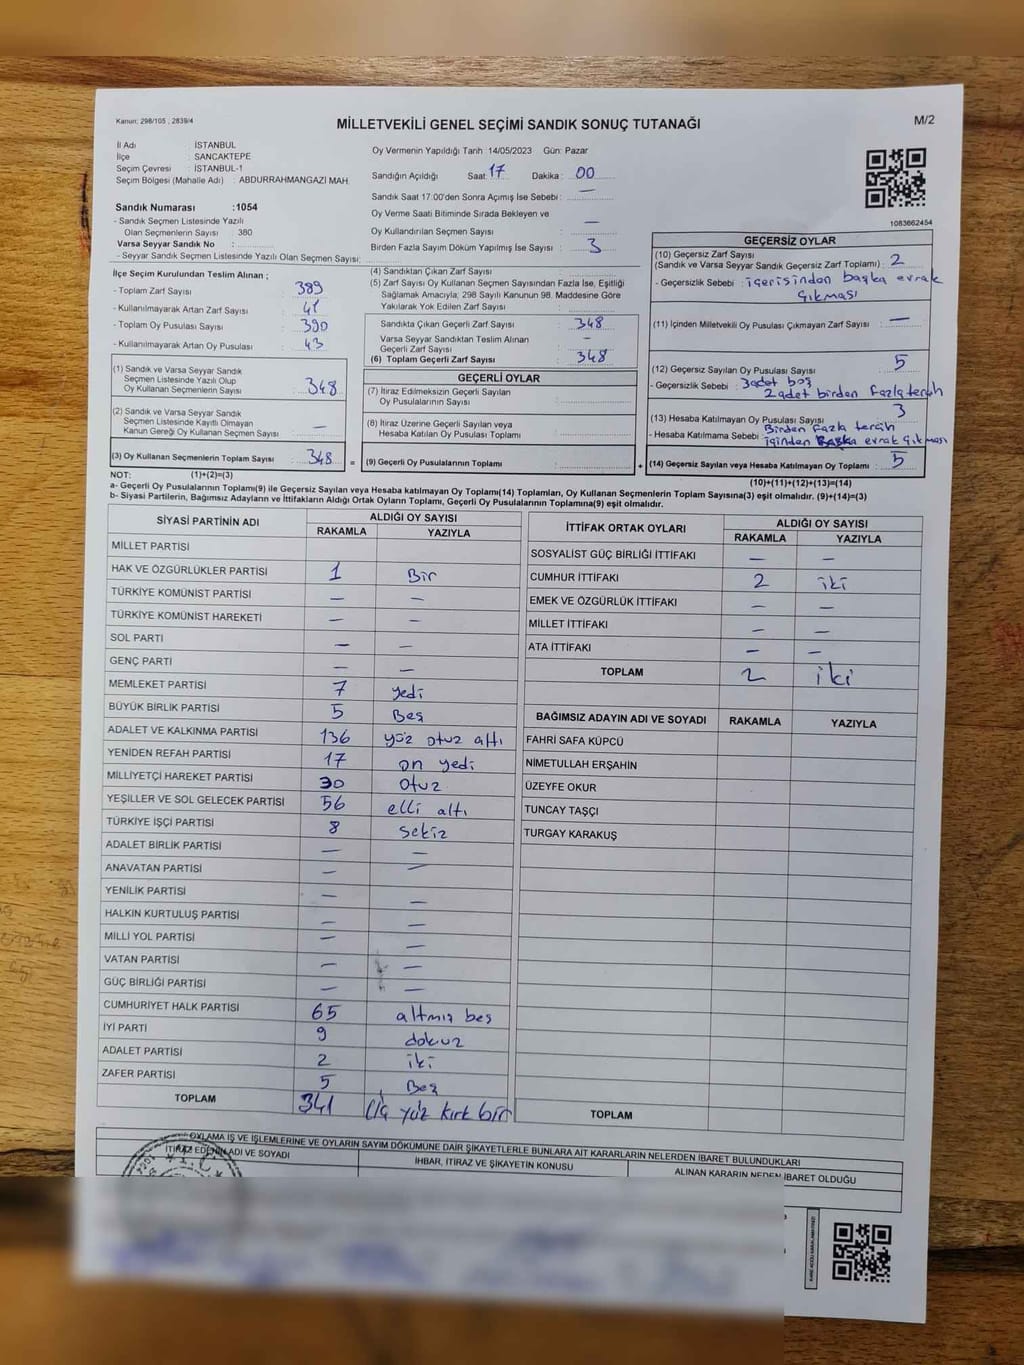 Kanun: 298/105 ; 2839/4
MİLLETVEKİLİ GENEL SEÇİMİ SANDIK SONUÇ TUTANAĞI
M/2
İl Adı İSTANBUL
İlçe : SANCAKTEPE
Seçim Çevresi : İSTANBUL-1
Seçim Bölgesi (Mahalle Adı) : ABDURRAHMANGAZİ MAH.
Sandık Numarası :1054
- Sandık Seçmen Listesinde Yazılı
Olan Seçmenlerin Sayısı : 380
Varsa Seyyar Sandık No :
- Seyyar Sandık Seçmen Listesinde Yazılı Olan Seçmen Sayısı:
Oy Vermenin Yapıldığı Tarih: 14/05/2023 Gün: Pazar
Sandığın Açıldığı Saat: 17 Dakika: 00
Sandık Saat 17:00'den Sonra Açılmış İse Sebebi : —
Oy Verme Saati Bitiminde Sırada Bekleyen ve
Oy Kullandırılan Seçmen Sayısı : —
Birden Fazla Sayım Döküm Yapılmış İse Sayısı : 3
1083662454
İlçe Seçim Kurulundan Teslim Alınan ;
- Toplam Zarf Sayısı : 389
- Kullanılmayarak Artan Zarf Sayısı : 41
- Toplam Oy Pusulası Sayısı : 390
- Kullanılmayarak Artan Oy Pusulası : 43
(1) Sandık ve Varsa Seyyar Sandık
Seçmen Listesinde Yazılı Olup
Oy Kullanan Seçmenlerin Sayısı : 348
(2) Sandık ve Varsa Seyyar Sandık
Seçmen Listesinde Kayıtlı Olmayan
Kanun Gereği Oy Kullanan Seçmen Sayısı : —
(3) Oy Kullanan Seçmenlerin Toplam Sayısı : 348
(4) Sandıktan Çıkan Zarf Sayısı :
(5) Zarf Sayısı Oy Kullanan Seçmen Sayısından Fazla İse, Eşitliği
Sağlamak Amacıyla; 298 Sayılı Kanunun 98. Maddesine Göre
Yakılarak Yok Edilen Zarf Sayısı :
Sandıkta Çıkan Geçerli Zarf Sayısı : 348
Varsa Seyyar Sandıktan Teslim Alınan
Geçerli Zarf Sayısı : —
(6) Toplam Geçerli Zarf Sayısı : 348
GEÇERLİ OYLAR
(7) İtiraz Edilmeksizin Geçerli Sayılan
Oy Pusulalarının Sayısı :
(8) İtiraz Üzerine Geçerli Sayılan veya
Hesaba Katılan Oy Pusulası Toplamı :
= (9) Geçerli Oy Pusulalarının Toplamı : +
GEÇERSİZ OYLAR
(10) Geçersiz Zarf Sayısı
(Sandık ve Varsa Seyyar Sandık Geçersiz Zarf Toplamı) : 2
- Geçersizlik Sebebi : içerisinden başka evrak
çıkması
(11) İçinden Milletvekili Oy Pusulası Çıkmayan Zarf Sayısı : —
(12) Geçersiz Sayılan Oy Pusulası Sayısı : 5
- Geçersizlik Sebebi : 3 adet boş
2 adet birden fazla tercih
(13) Hesaba Katılmayan Oy Pusulası Sayısı : 3
Birden Fazla tercih
- Hesaba Katılmama Sebebi : içinden Başka evrak çıkması
(14) Geçersiz Sayılan veya Hesaba Katılmayan Oy Toplamı : 5
NOT: (1)+(2)=(3)
(10)+(11)+(12)+(13)=(14)
a- Geçerli Oy Pusulalarının Toplamı(9) ile Geçersiz Sayılan veya Hesaba katılmayan Oy Toplamı(14) Toplamları, Oy Kullanan Seçmenlerin Toplam Sayısına(3) eşit olmalıdır. (9)+(14)=(3)
b- Siyasi Partilerin, Bağımsız Adayların ve İttifakların Aldığı Ortak Oyların Toplamı, Geçerli Oy Pusulalarının Toplamına(9) eşit olmalıdır.
SİYASİ PARTİNİN ADI ALDIĞI OY SAYISI
RAKAMLA YAZIYLA
MİLLET PARTİSİ
HAK VE ÖZGÜRLÜKLER PARTİSİ 1 Bir
TÜRKİYE KOMÜNİST PARTİSİ — —
TÜRKİYE KOMÜNİST HAREKETİ — —
SOL PARTİ — —
GENÇ PARTİ — —
MEMLEKET PARTİSİ 7 yedi
BÜYÜK BİRLİK PARTİSİ 5 Beş
ADALET VE KALKINMA PARTİSİ 136 yüz otuz altı
YENİDEN REFAH PARTİSİ 17 on yedi
MİLLİYETÇİ HAREKET PARTİSİ 30 otuz
YEŞİLLER VE SOL GELECEK PARTİSİ 56 elli altı
TÜRKİYE İŞÇİ PARTİSİ 8 sekiz
ADALET BİRLİK PARTİSİ — —
ANAVATAN PARTİSİ — —
YENİLİK PARTİSİ — —
HALKIN KURTULUŞ PARTİSİ — —
MİLLİ YOL PARTİSİ — —
VATAN PARTİSİ — —
GÜÇ BİRLİĞİ PARTİSİ — —
CUMHURİYET HALK PARTİSİ 65 altmış beş
İYİ PARTİ 9 dokuz
ADALET PARTİSİ 2 iki
ZAFER PARTİSİ 5 Beş
TOPLAM 341 üç yüz kırk bir
İTTİFAK ORTAK OYLARI ALDIĞI OY SAYISI
RAKAMLA YAZIYLA
SOSYALİST GÜÇ BİRLİĞİ İTTİFAKI — —
CUMHUR İTTİFAKI 2 iki
EMEK VE ÖZGÜRLÜK İTTİFAKI — —
MİLLET İTTİFAKI — —
ATA İTTİFAKI — —
TOPLAM 2 iki
BAĞIMSIZ ADAYIN ADI VE SOYADI RAKAMLA YAZIYLA
FAHRİ SAFA KÜPCÜ
NİMETULLAH ERŞAHİN
ÜZEYFE OKUR
TUNCAY TAŞÇI
TURGAY KARAKUŞ
TOPLAM
OYLAMA İŞ VE İŞLEMLERİNE VE OYLARIN SAYIM DÖKÜMÜNE DAİR ŞİKAYETLERLE BUNLARA AİT KARARLARIN NELERDEN İBARET BULUNDUKLARI
İTİRAZ EDENİN ADI VE SOYADI
İHBAR, İTİRAZ VE ŞİKAYETİN KONUSU
ALINAN KARARIN NEDEN İBARET OLDUĞU